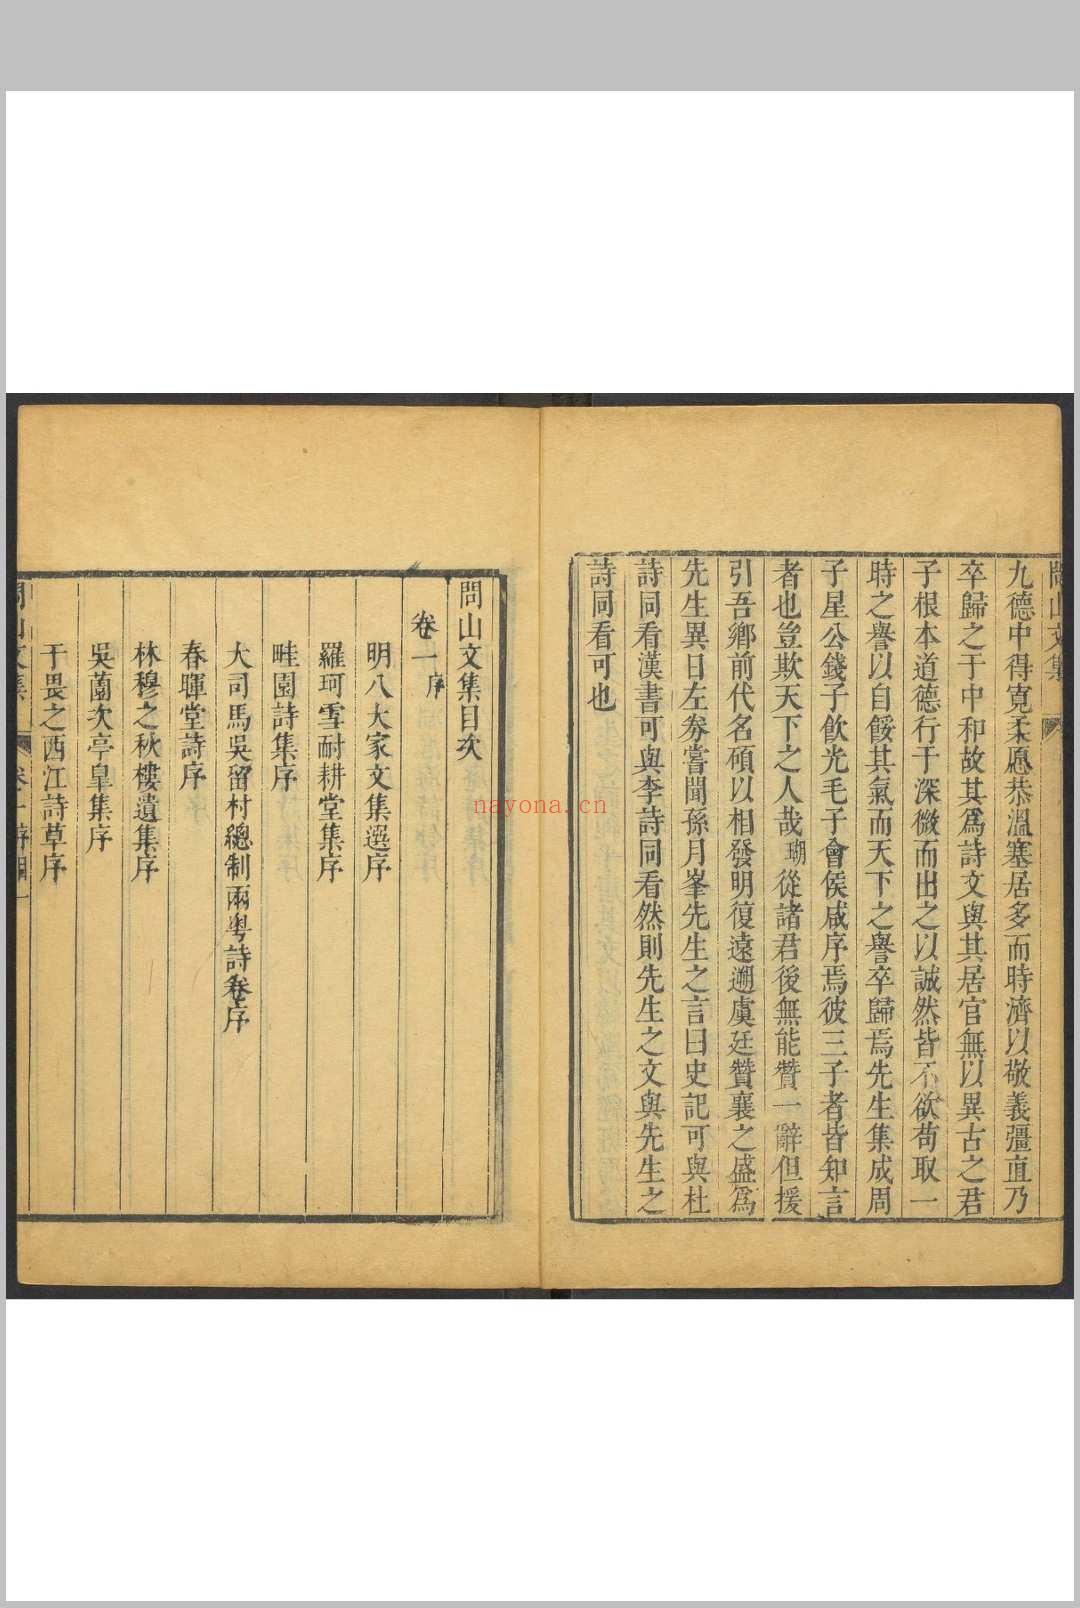 問山文集
九德中得寬柔愿恭溫塞居多而時濟以敬義彊直乃
卒歸之于中和故其爲詩文與其居官無以異古之君
子根本道德行于深微而出之以誠然皆不欲苟取一
時之譽以自餒其氣而天下之譽卒歸焉先生集成周
子星公錢子飮光毛子會侯咸序焉彼三子者皆知言
者也豈欺天下之人哉瑚從諸君後無能贊一辭但援
引吾鄉前代名碩以相發明復遠遡虞廷贊襄之盛爲
先生異日左券嘗聞孫月峯先生之言曰史記可與杜
詩同看漢書可與李詩同看然則先生之文與先生之
詩同看可也
問山文集目次
卷一 序
明八大家文集選序
羅珂雪耐耕堂集序
畦園詩集序
大司馬吳留村總制兩粤詩卷序
春暉堂詩序
林穆之秋樓遺集序
吳薗次亭皐集序
于畏之西江詩草序
問山文集 卷一序目 一
nayona.cn